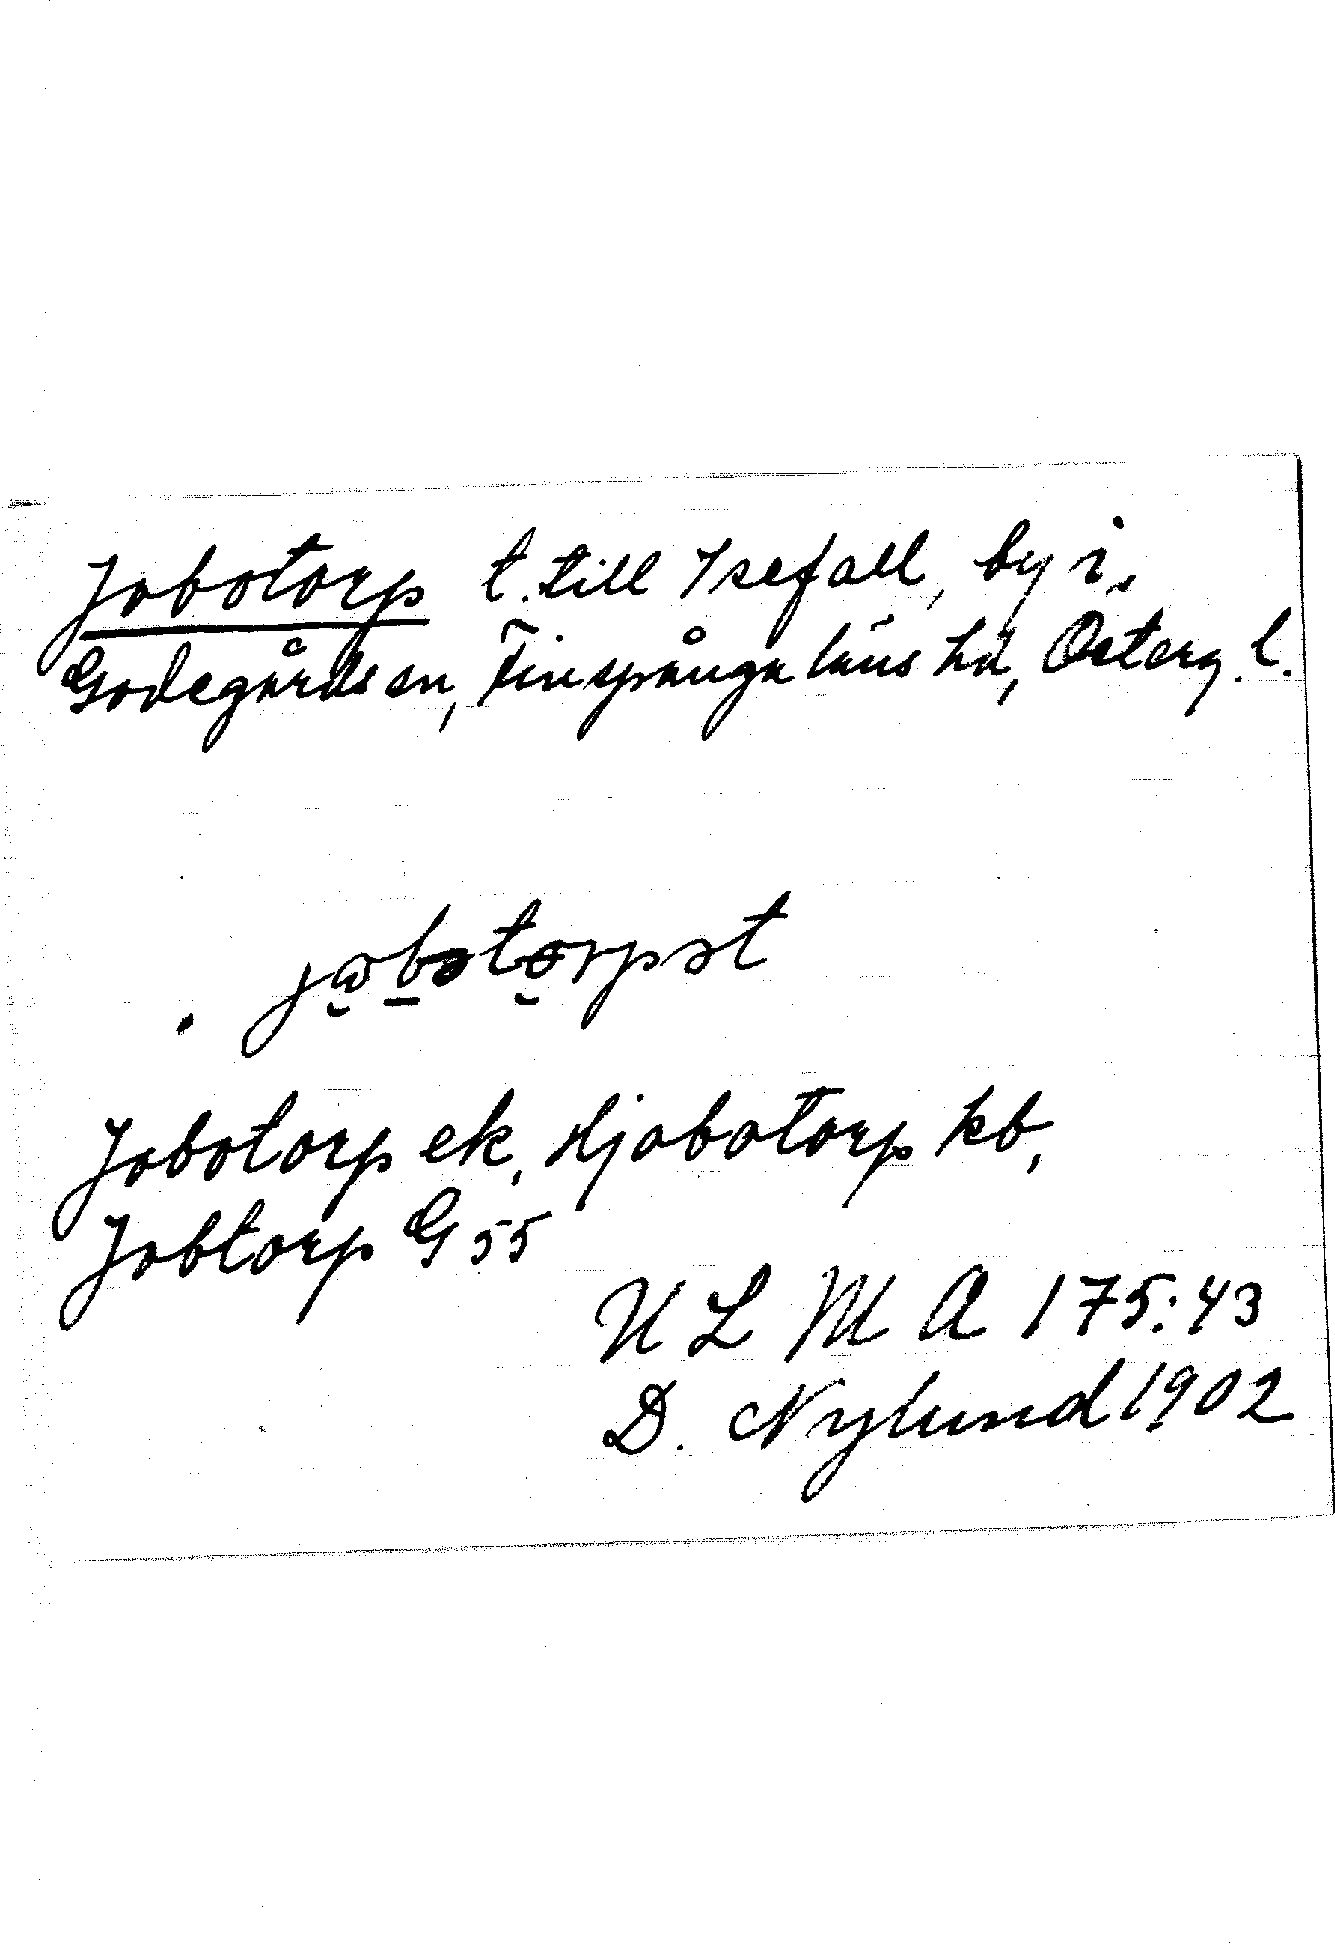 Jobotorp t. till Isefall, by i
Godegårds sn, Finspånga läns hd, Österg. l.
jobotorpst
Jobotorp ek, Hjobotorp kb,
Jobtorp G 55
U L M A 175:43
D. Nylund 1902